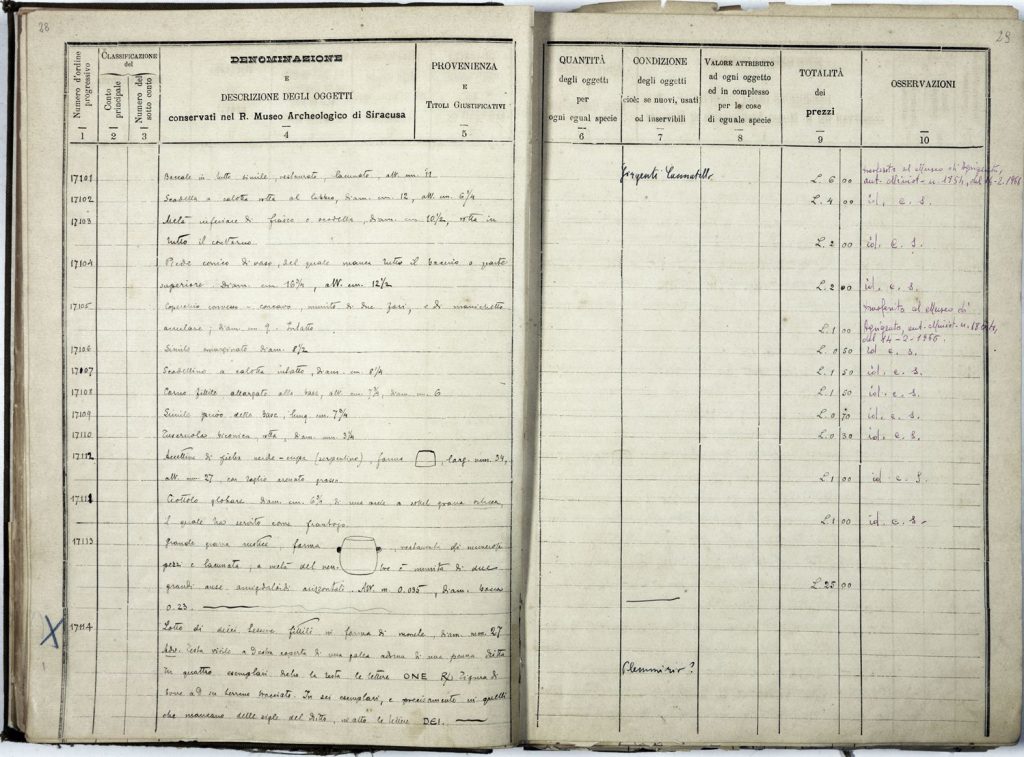 28
Numero d'ordine progressivo
1
CLASSIFICAZIONE
del
Conto principale
2
Numero del sotto conto
3
DENOMINAZIONE
E
DESCRIZIONE DEGLI OGGETTI
conservati nel R. Museo Archeologico di Siracusa
4
PROVENIENZA
E
TITOLI GIUSTIFICATIVI
5
17101 in tutto simile, restaurato, lacunato, alt. cm. 11
17102 Scodella a calotta rotta al labbro, diam. cm. 12, alt. cm. 6 1/4
17103 Metà inferiore di fiasco o scodella, diam. cm. 10 1/2, rotta in
tutto il contorno.
17104 Piede conico di vaso, del quale manca tutto il bacino o parte
superiore. Diam. cm. 16 3/4, alt. cm. 12 1/2
17105 Coperchio convesso-concavo, munito di due fori, e di manichetto
; diam. cm 9. Intatto.
17106 Simile diam. 8 1/2
17107 Scodellino a calotta intatto, diam. cm.
17108 Corno fittile allargato alla base, alt. cm. diam. cm. 6
17109 Simile privo della base, lung. cm. 7 3/4
17110 Fuseruola biconica, rotta, diam. cm.
17112 Accettina di pietra verde-cupa (serpentino), forma , larg. mm. 34,
alt. mm. 27, con taglio arcuato grosso.
Ciottolo globare diam. cm. di una arde a grana
il quale ha servito come
17113 Grande forma , restaurata di numerosi
pezzi e lacunata, a metà del è munita di due
grandi anse Alt. m. 0.035, diam. bocca
0.23.
17114 Lotto di dieci tessere fittili in forma di monete, diam. mm. 27
testa virile a destra coperta di una galea adorna di una penna. Ditta
in quattro esemplari dietro la testa le lettere ONE Figura di
bove a D su terreno tracciato. In sei esemplari, e precisamente in quelli
che mancano delle sigle del Ditto, in alto le lettere DEI.
29
QUANTITÀ
degli oggetti
per
ogni egual specie
6
CONDIZIONE
degli oggetti
cioè: se nuovi, usati
od inservibili
7
VALORE ATTRIBUITO
ad ogni oggetto
ed in complesso
per le cose
di eguale specie
8
TOTALITÀ
dei
prezzi
9
OSSERVAZIONI
10
Girgenti Cannatello L. 6 00 trasferito al Museo di Agrigento,
aut. Minist. n. 1754, del
L. 4 00 id. c. s.
L. 2 00 id. c. s.
L. 2 00 id. c. s.
trasferito al Museo di
L. 1 00 Agrigento, aut. Minist. n.
del
L. 0 50 id. c. s.
L. 1 50 id. c. s.
L. 1 50 id. c. s.
L. 0 70 id. c. s.
L. 0 30 id. c. s.
L. 1 00 id c. s.
L. 1 00 id. c. s.
L. 25 00
Plemmirio?